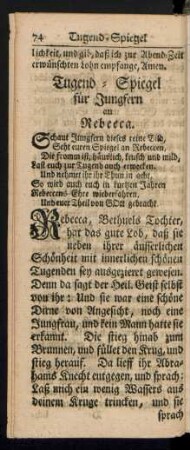 74 Tugend-Spiegel
lichkeit, und gib, daß ich zur Abend-Zeit
erwünschten Lohn empfange, Amen.
Tugend-Spiegel
für Jungfern
an
Rebecca.
Schaut Jungfern dieses reine Bild,
Seht euren Spiegel an Rebeccen,
Die fromm ist, häuslich, keusch und mild,
Laßt euch zur Tugend auch erwecken.
Und nehmet ihr ihr Thun in acht,
So wird auch euch in kurtzen Jahren
Rebeccens Ehre wiederfahren,
Und euer Theil von GOtt gebracht.
Rebecca, Bethuels Tochter,
hat das gute Lob, daß sie
neben ihrer äusserlichen
Schönheit mit innerlichen schönen
Tugenden sey ausgezieret gewesen.
Denn da sagt der Heil. Geist selbst
von ihr: Und sie war eine schöne
Dirne von Angesicht, noch eine
Jungfrau, und kein Mann hatte sie
erkannt. Die stieg hinab zum
Brunnen, und füllet den Krug, und
stieg herauf. Da lieff ihr Abra-
hams Knecht entgegen, und sprach:
Laß mich ein wenig Wassers aus
deinem Kruge trincken, und sie
sprach